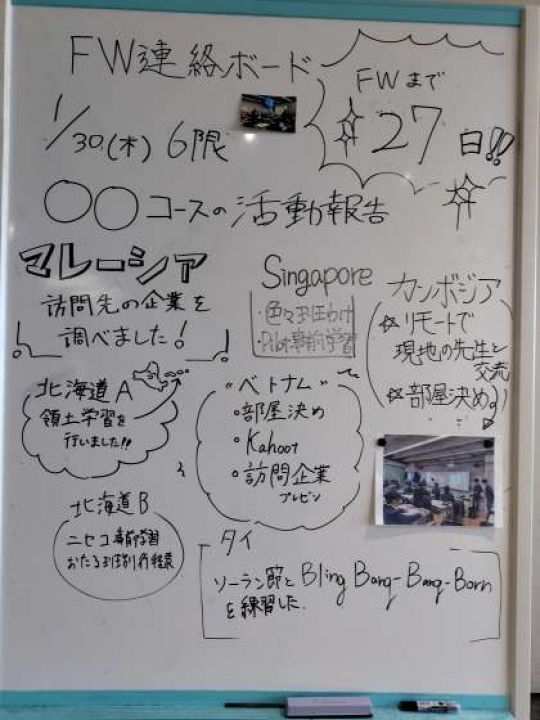 FW連絡ボード
FWまで
27日!!
1/30(木) 6限
〇〇コースの活動報告
マレーシア
訪問先の企業を
調べました!
Singapore
・色々
・Pilot事前学習
カンボジア
☆リモートで
現地の先生と
交流
☆部屋決め
北海道A
領土学習を
行いました!!
"ベトナム"
○部屋決め
○Kahoot
○訪問企業
プレゼン
北海道B
ニセコ事前学習
おたる班別行程
タイ
ソーラン節と Bling Bang-Bang-Born
を練習した.